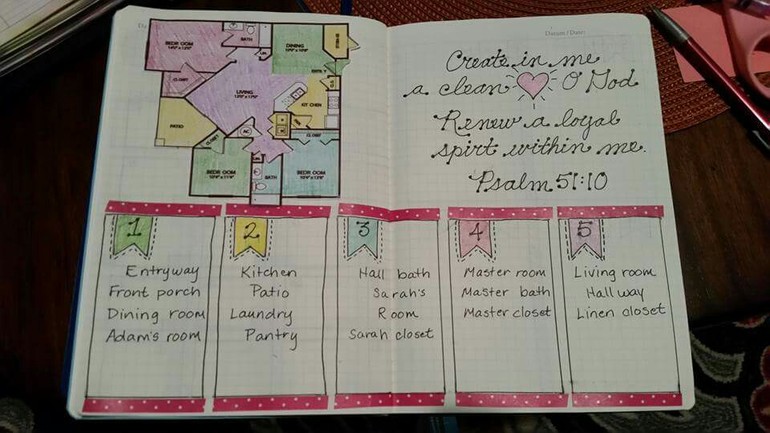 BEDROOM
BATH
DINING
CLOSET
LIVING
KITCHEN
PATIO
CLOSET
AC
CLOSET
BEDROOM
BATH
BEDROOM
Create in me
a clean O God
Renew a loyal
spirt within me.
Psalm 51:10
1
Entryway
Front porch
Dining room
Adam's room
2
Kitchen
Patio
Laundry
Pantry
3
Hall bath
Sarah's
Room
Sarah closet
4
Master room
Master bath
Master closet
5
Living room
Hall way
Linen closet